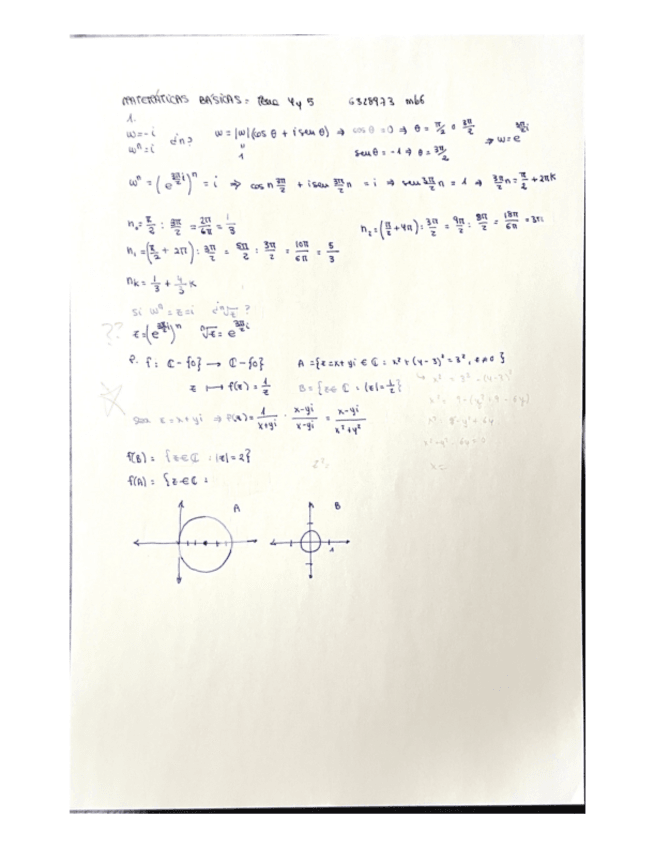 MATEMÁTICAS BÁSICAS: Tema 4 y 5 6328973 m66
1.
w=-i
wⁿ=i ¿n? w = |w|(cos θ + i sen θ) ⇒ cos θ = 0 ⇒ θ = π/2 o 3π/2 ⇒ w = e^(3π/2 i)
1 sen θ = -1 ⇒ θ = 3π/2
wⁿ = (e^(3π/2 i))ⁿ = i ⇒ cos n 3π/2 + i sen 3π/2 n = i ⇒ sen 3π/2 n = 1 ⇒ 3π/2 n = π/2 + 2πK
n₀ = π/2 : 3π/2 = 2π/6π = 1/3 n₂ = (π/2 + 4π) : 3π/2 = 9π/2 : 3π/2 = 18π/6π =
n₁ = (π/2 + 2π) : 3π/2 = 5π/2 : 3π/2 = 10π/6π = 5/3
nK = 1/3 + 4/3 K
Si wⁿ = z = i ¿ⁿ√z?
?? z = (e^(3π/2 i))ⁿ ⁿ√z = e^(3π/2 i)
2. f: ℂ-{0} → ℂ-{0} A = {z = x+yi ∈ ℂ : x² + (y-3)² = 3², z≠0}
z ↦ f(z) = 1/z B = {z ∈ ℂ : |z| = 1/2} x² = 3² - (y-3)²
x² = 9 - (y² + 9 - 6y)
Sea z = x+yi ⇒ f(z) = 1/(x+yi) · (x-yi)/(x-yi) = (x-yi)/(x²+y²)
f(B) = {z ∈ ℂ : |z| = 2}
f(A) = {z ∈ ℂ : x =
A B
1